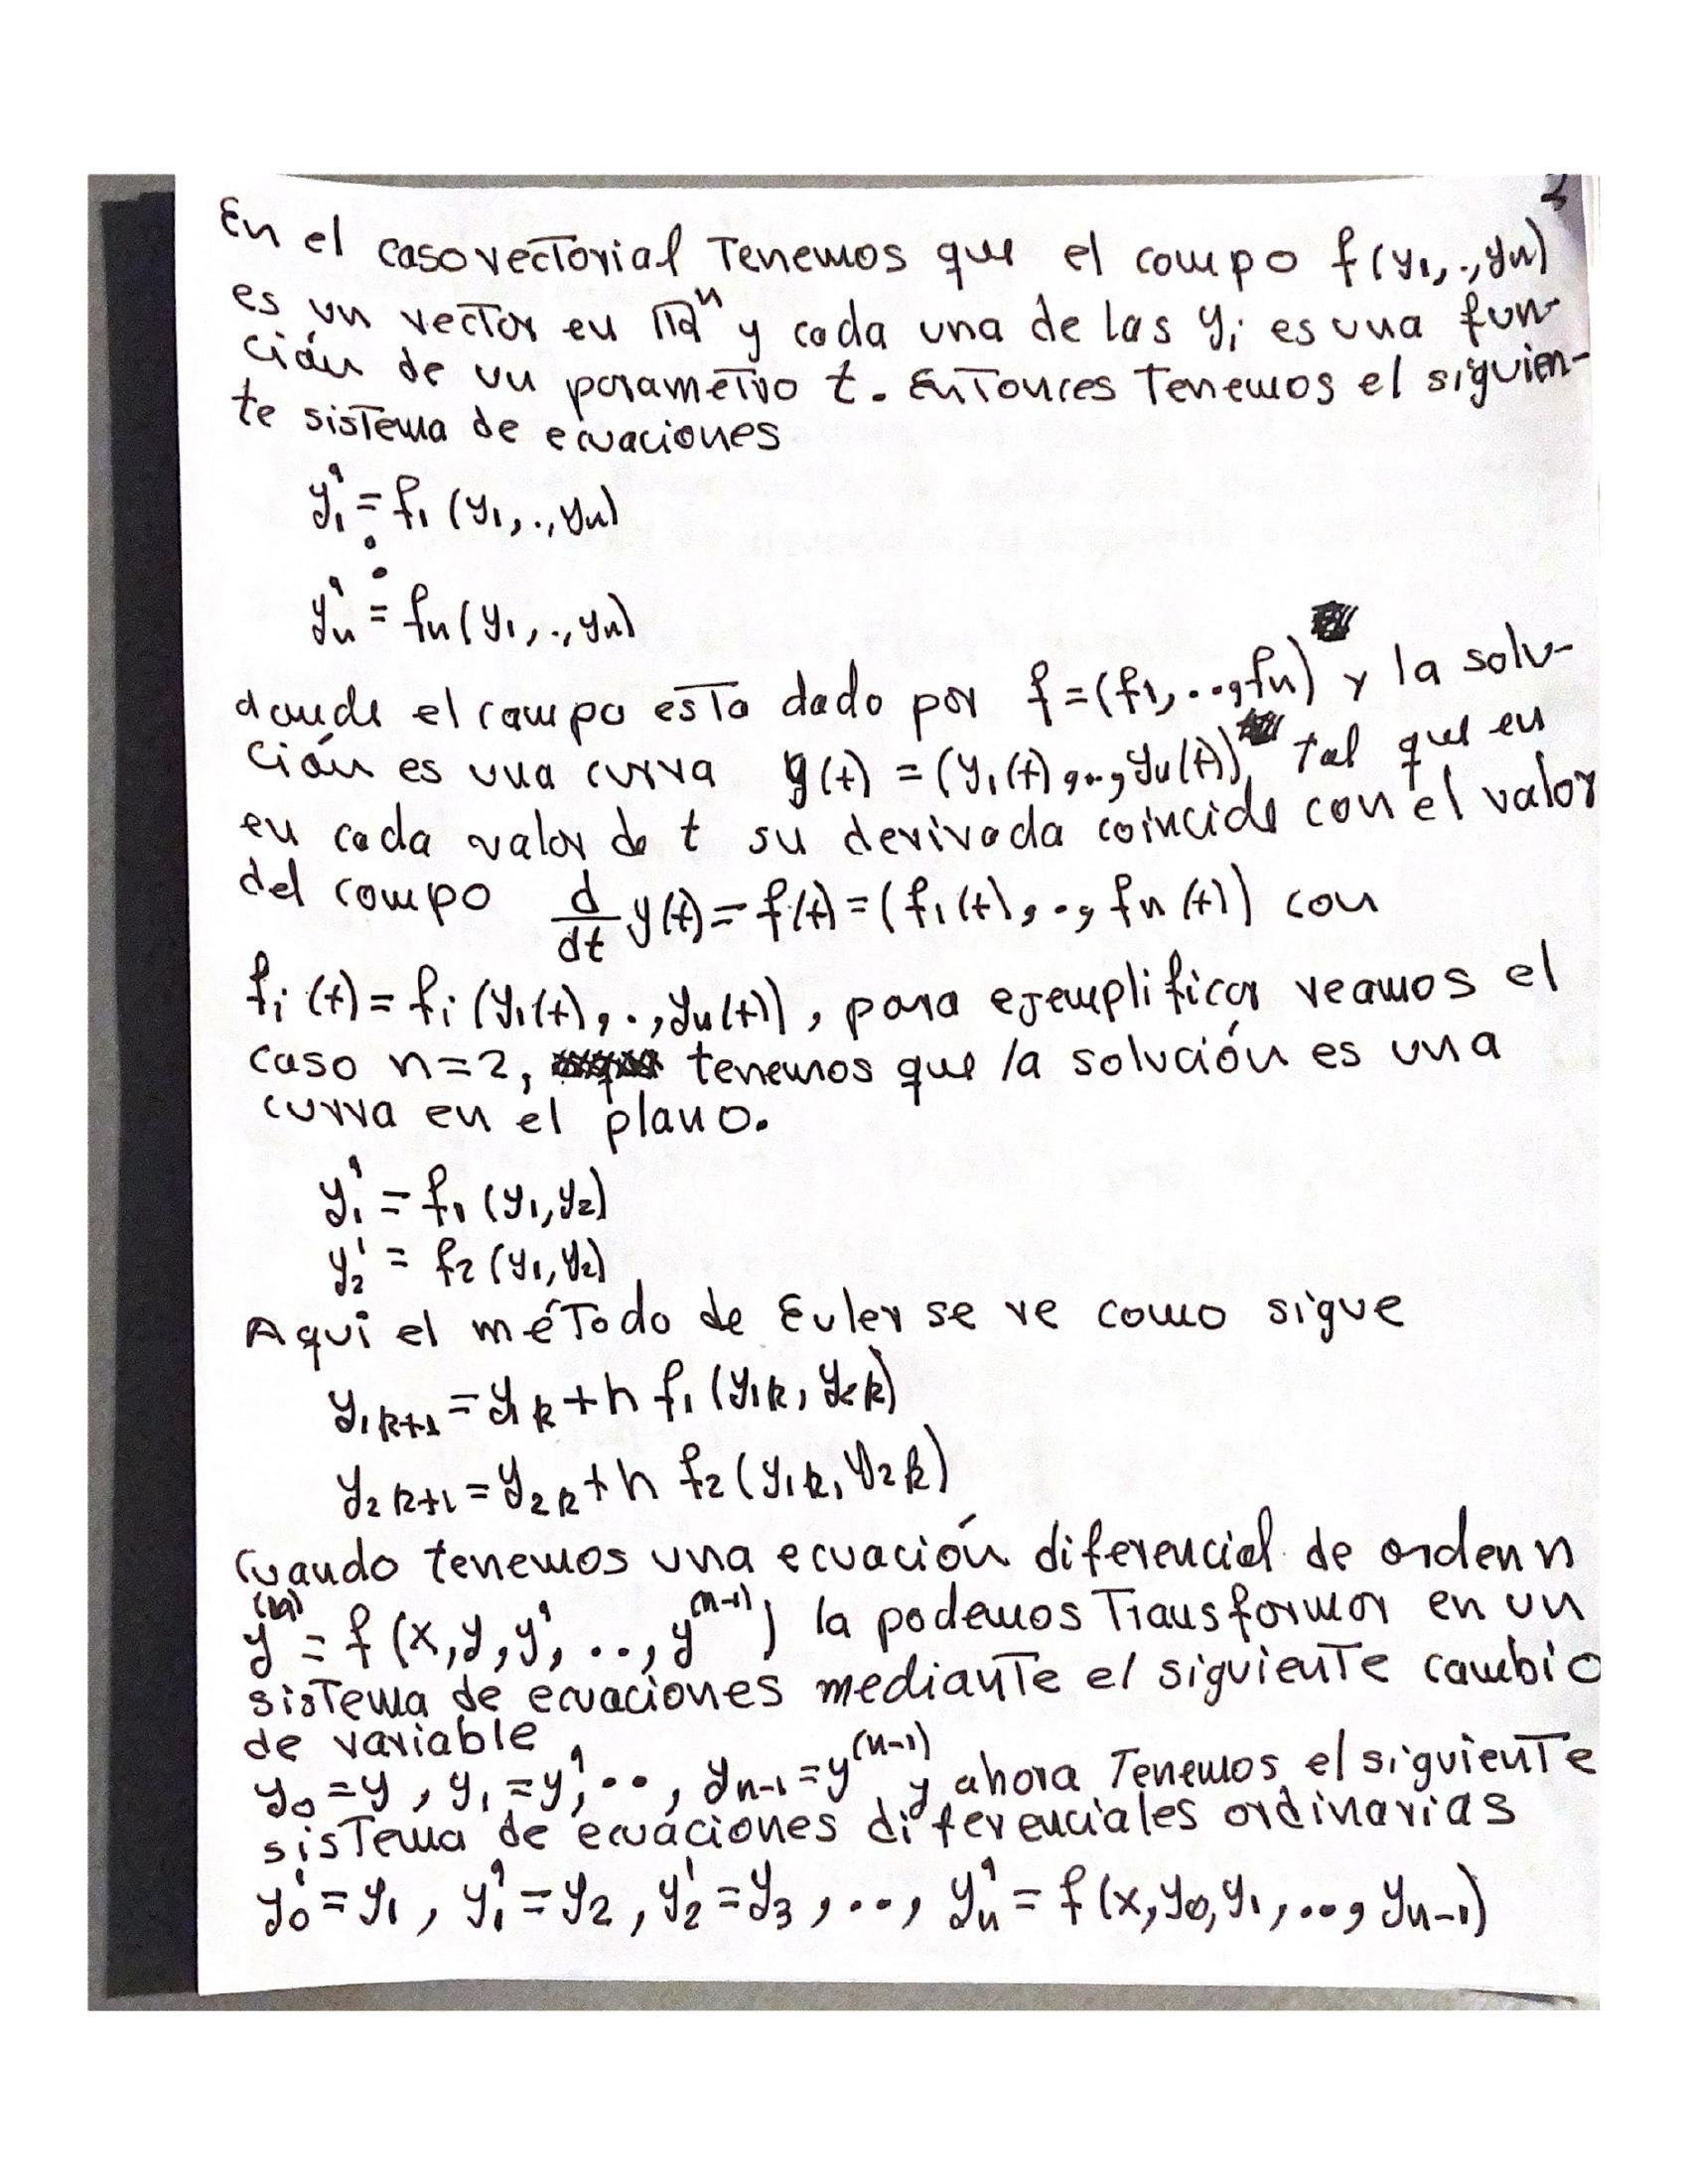 2
En el caso vectorial Tenemos que el campo f(y₁,.,yₙ)
es un vector en ℝⁿ y cada una de las yᵢ es una fun-
ción de un parametro t. EnTonces Tenemos el siguien-
te sistema de ecuaciones
y₁' = f₁(y₁,.,yₙ)
:
yₙ' = fₙ(y₁,.,yₙ)
donde el campo esta dado por f=(f₁,..,fₙ) y la solu-
ción es una curva y(t) = (y₁(t),..,yₙ(t)), tal que en
en cada valor de t su derivada coincide con el valor
del campo d/dt y(t) = f(t) = (f₁(t),.,fₙ(t)) con
fᵢ(t) = fᵢ(y₁(t),.,yₙ(t)), para ejemplificar veamos el
caso n=2, tenemos que la solución es una
curva en el plano.
y₁' = f₁(y₁,y₂)
y₂' = f₂(y₁,y₂)
Aqui el método de Euler se ve como sigue
y₁ₖ₊₁ = y₁ₖ + h f₁(y₁ₖ, y₂ₖ)
y₂ₖ₊₁ = y₂ₖ + h f₂(y₁ₖ, y₂ₖ)
Cuando tenemos una ecuación diferencial de orden n
y⁽ⁿ⁾ = f(x,y,y',..,y⁽ⁿ⁻¹⁾) la podemos Transformar en un
sistema de ecuaciones mediante el siguiente cambio
de variable
y₀ = y, y₁ = y',.., yₙ₋₁ = y⁽ⁿ⁻¹⁾ y ahora Tenemos el siguiente
sistema de ecuaciones diferenciales ordinarias
y₀' = y₁, y₁' = y₂, y₂' = y₃,.., yₙ' = f(x,y₀,y₁,..,yₙ₋₁)